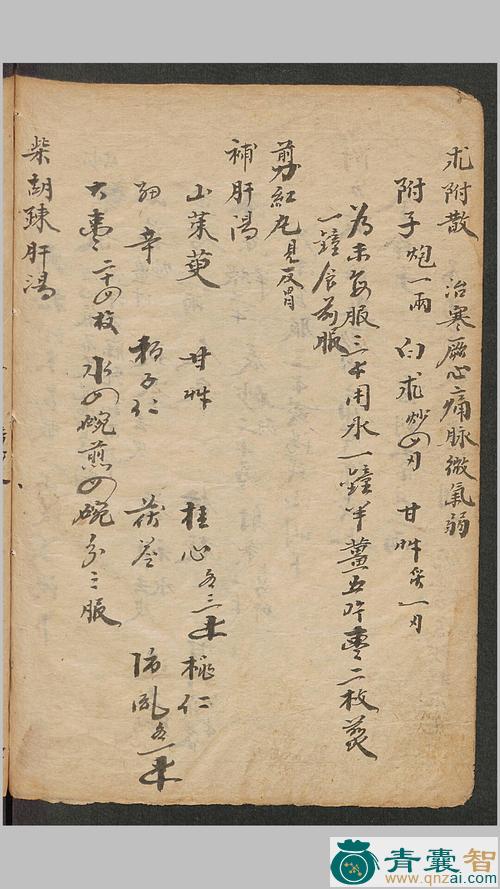 朮附散 治寒厥心痛脉微氣弱
附子炮一兩 白朮炒四刄 甘艸炙一刄
為末每服三錢用水一鐘半薑五片棗二枚煎
一鐘食前服
剪紅丸見反胃
補肝湯
山茱萸 甘艸 桂心各三錢 桃仁
細辛 栢子仁 茯苓 防風各一錢
大棗二十四枚 水四碗煎四碗分三服
柴胡踈肝湯
青囊智
www.qnzai.com